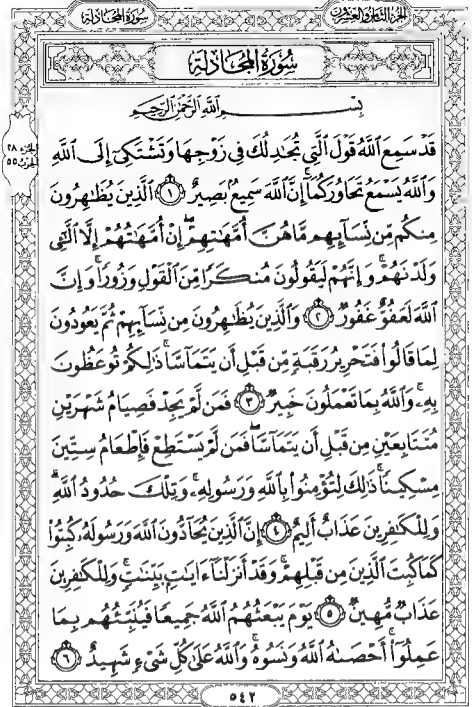 الجزء الثامن والعشرون
سورة المجادلة
سُورَةُ المُجَادلَة
بِسْمِ اللَّهِ الرَّحْمَٰنِ الرَّحِيمِ
الجزء ٢٨
الحزب ٥٥
قَدْ سَمِعَ اللَّهُ قَوْلَ الَّتِي تُجَٰدِلُكَ فِي زَوْجِهَا وَتَشْتَكِيٓ إِلَى اللَّهِ
وَاللَّهُ يَسْمَعُ تَحَاوُرَكُمَآ ۚ إِنَّ اللَّهَ سَمِيعٌۢ بَصِيرٌ ١ الَّذِينَ يُظَٰهِرُونَ
مِنكُم مِّن نِّسَآئِهِم مَّا هُنَّ أُمَّهَٰتِهِمْ ۖ إِنْ أُمَّهَٰتُهُمْ إِلَّا الَّٰٓـِٔي
وَلَدْنَهُمْ ۚ وَإِنَّهُمْ لَيَقُولُونَ مُنكَرًا مِّنَ الْقَوْلِ وَزُورًا ۚ وَإِنَّ
اللَّهَ لَعَفُوٌّ غَفُورٌ ٢ وَالَّذِينَ يُظَٰهِرُونَ مِن نِّسَآئِهِمْ ثُمَّ يَعُودُونَ
لِمَا قَالُوا۟ فَتَحْرِيرُ رَقَبَةٍ مِّن قَبْلِ أَن يَتَمَآسَّا ۚ ذَٰلِكُمْ تُوعَظُونَ
بِهِۦ ۚ وَاللَّهُ بِمَا تَعْمَلُونَ خَبِيرٌ ٣ فَمَن لَّمْ يَجِدْ فَصِيَامُ شَهْرَيْنِ
مُتَتَابِعَيْنِ مِن قَبْلِ أَن يَتَمَآسَّا ۖ فَمَن لَّمْ يَسْتَطِعْ فَإِطْعَامُ سِتِّينَ
مِسْكِينًا ۚ ذَٰلِكَ لِتُؤْمِنُوا۟ بِاللَّهِ وَرَسُولِهِۦ ۚ وَتِلْكَ حُدُودُ اللَّهِ ۗ
وَلِلْكَٰفِرِينَ عَذَابٌ أَلِيمٌ ٤ إِنَّ الَّذِينَ يُحَآدُّونَ اللَّهَ وَرَسُولَهُۥ كُبِتُوا۟
كَمَا كُبِتَ الَّذِينَ مِن قَبْلِهِمْ ۚ وَقَدْ أَنزَلْنَآ ءَايَٰتٍۭ بَيِّنَٰتٍ ۚ وَلِلْكَٰفِرِينَ
عَذَابٌ مُّهِينٌ ٥ يَوْمَ يَبْعَثُهُمُ اللَّهُ جَمِيعًا فَيُنَبِّئُهُم بِمَا
عَمِلُوٓا۟ ۚ أَحْصَىٰهُ اللَّهُ وَنَسُوهُ ۚ وَاللَّهُ عَلَىٰ كُلِّ شَيْءٍ شَهِيدٌ ٦
٥٤٢